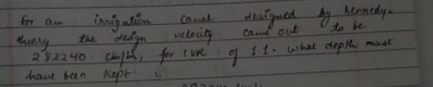 For an irrigation canal designed by kennedy's
theory the design velocity came out to be
282240 cm/h, for CVR of 1.1. what depth must
have been kept.